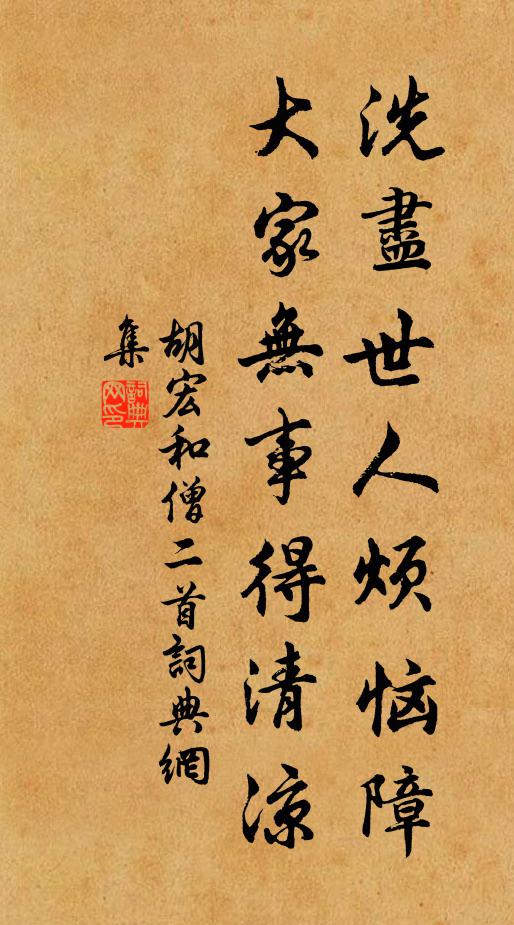 洗盡世人煩惱障
大家無事得清涼
胡宏和僧二首詞典網
集
詞典網印